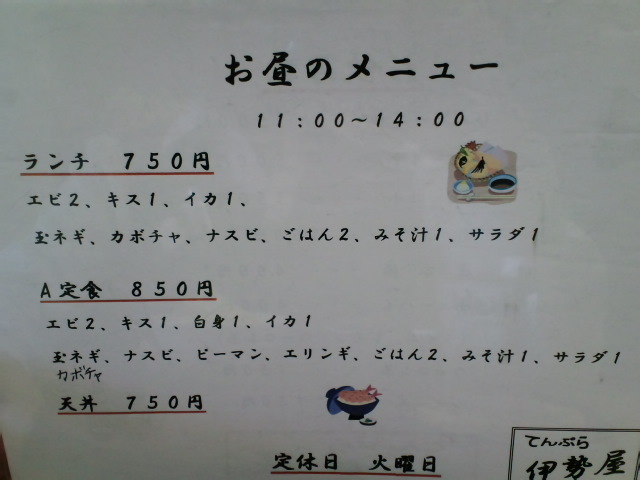 お昼のメニュー
11:00~14:00
ランチ 750円
エビ2、キス1、イカ1、
玉ネギ、カボチャ、ナスビ、ごはん2、みそ汁1、サラダ1
A定食 850円
エビ2、キス1、白身1、イカ1
玉ネギ、ナスビ、ピーマン、エリンギ、ごはん2、みそ汁1、サラダ1
カボチャ
天丼 750円
定休日 火曜日
てんぷら
伊勢屋